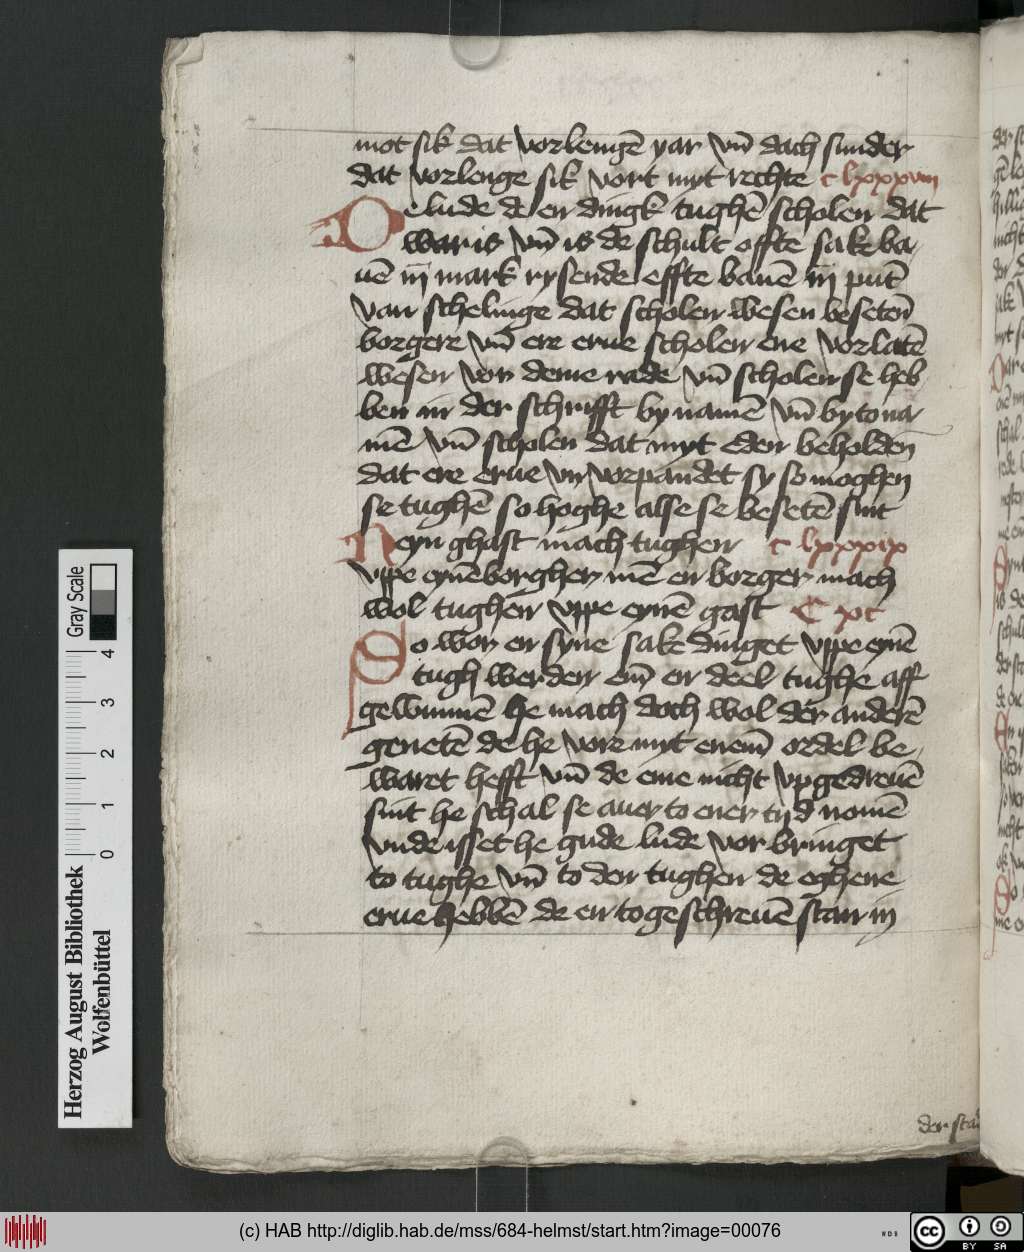 mot sik dat vorlengē yar vn̄ dach sunder
dat vorlenge sik vort myt rechte c lxxxviii
De lude de en dingk tughē scholen dat
war is vn̄ is de schult effte sake ba-
uē iij mark rysende effte bauē iij pūt
van schelinge dat scholen wesen besetēn
borgere vn̄ ere erue scholen ene vorlatē
wesen vor deme rade vn̄ scholen se heb
ben in der schrifft by namē vn̄ by tona
mē vn̄ scholen dat myt eden beholden
dat ere erue vn vorpandet sy so moghen
se tughē so hoghe alse se besetē sint
Neyn ghast mach tughen c lxxxix
vppe eynē borgher mē en borger mach
wol tughen vppe eynē gast C xc
So wor en syne sake dinget vppe eynē
tugh werden em̄ en deel tughe aff
gewunnē he mach doch wol der anderē
genetē de he vore myt enem̄ ordel be-
waret hefft vn̄ de eme nicht vpgedreuē
sint he schal se auer to ener tijd nomē
vnde isset he gude lude vor bringet
to tughe vn̄ to den tughen de eghene
erue hebbē de en togeschreuē stan in
der sta
Herzog August Bibliothek
Wolfenbüttel
Gray Scale
0 1 2 3 4
(c) HAB http://diglib.hab.de/mss/684-helmst/start.htm?image=00076
WDB
cc BY SA